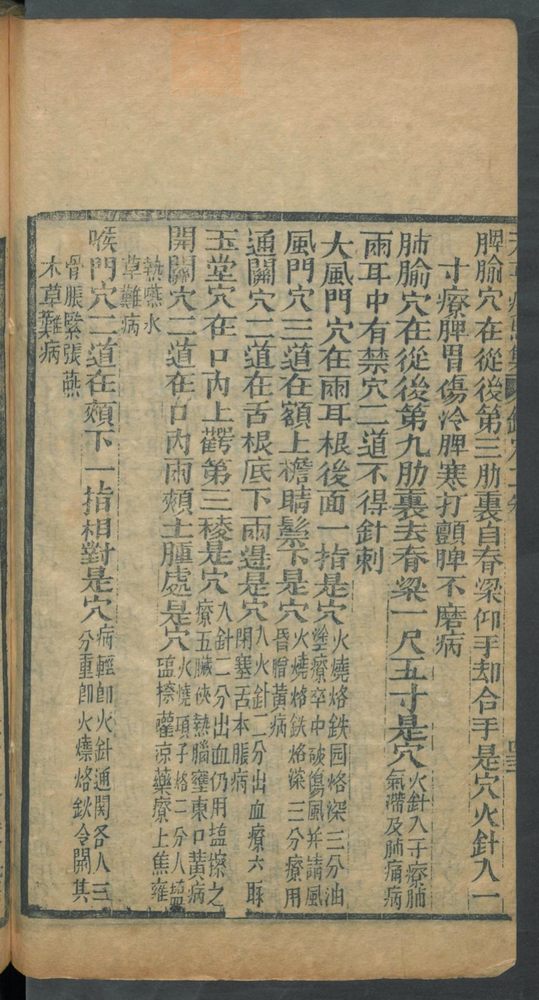 脾腧穴在從後第三肋裏自脊梁仰手却合手是穴火針入一
寸療脾胃傷冷脾寒打顫脾不磨病
肺腧穴在從後第九肋裏去脊梁一尺五寸是穴火針入一寸療肺
氣滯及肺痛病
兩耳中有禁穴二道不得針刺
大風門穴在兩耳根後面一指是穴火燒烙鉄园烙深三分油
塗療卒中破傷風并請風
風門穴三道在額上檐睛鬃下是穴火燒烙鉄烙深二分療用
昏膪黄病
通關穴二道在舌根底下兩邉是穴入火針二分出血療六
閉塞舌本脹病
玉堂穴在口内上齶第三稜是穴入針二分出血仍用塩擦之
療五臟伏熱腦壅東口黄病
開關穴二道在口内兩頰上腫處是穴火燒項子烙二分入塩
塩擦灌凉藥療上焦雍
熱嚥水
草難病
喉門穴二道在頰下一指相對是穴病輕即火針通関各入三
分重即火燻烙鈥令開其
骨脹緊張嚥
水草難病